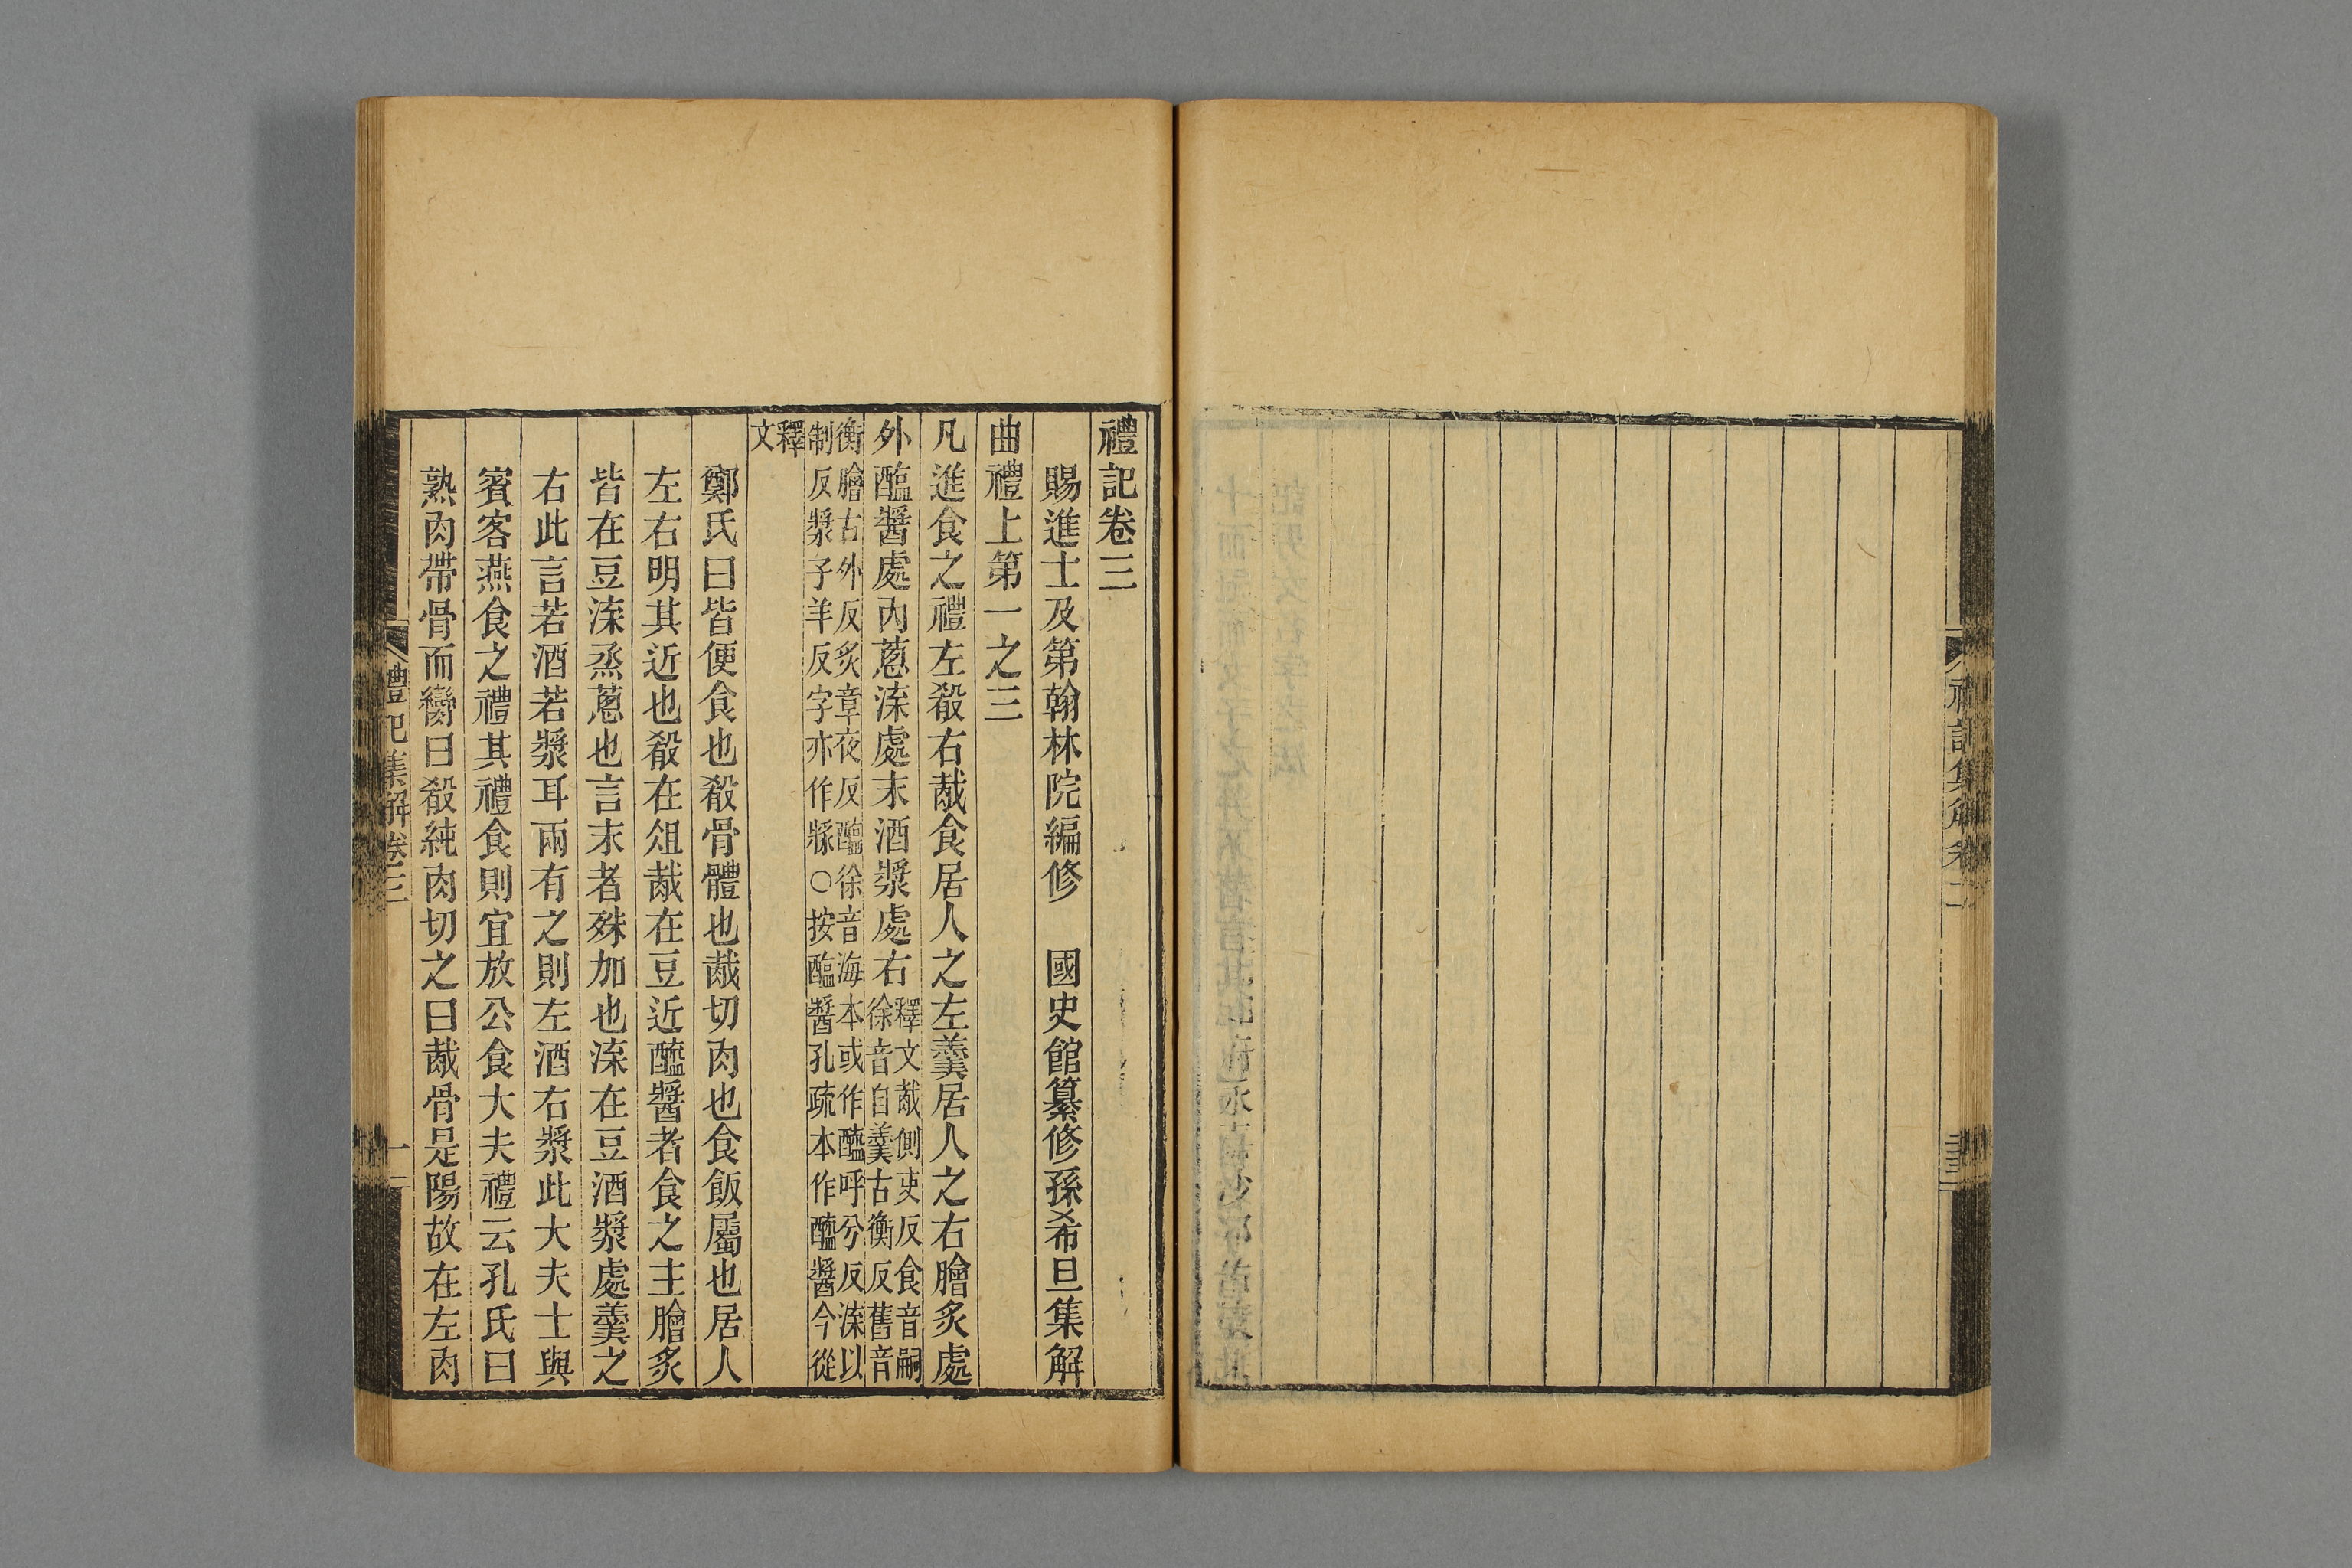 禮記集解卷二
禮記卷三
賜進士及第翰林院編修 國史館纂修孫希旦集解
曲禮上第一之三
凡進食之禮左殽右胾食居人之左羹居人之右膾炙處
外醢醬處內蔥渫處末酒漿處右
釋文胾側吏反食音嗣
徐音自羹古衡反舊音
衡膾古外反炙章夜反醢徐音海本或作醯呼兮反渫以
制反漿子羊反字亦作㺣○按醢醬孔疏本作醯醬今從
釋
文
鄭氏曰皆便食也殽骨體也胾切肉也食飯屬也居人
左右明其近也殽在俎胾在豆近醯醬者食之主膾炙
皆在豆渫烝蔥也言末者殊加也渫在豆酒漿處羹之
右此言若酒若漿耳兩有之則左酒右漿此大夫士與
賓客燕食之禮其禮食則宜放公食大夫禮云孔氏曰
熟肉帶骨而臠曰殽純肉切之曰胾骨是陽故在左肉
禮記集解卷三
一